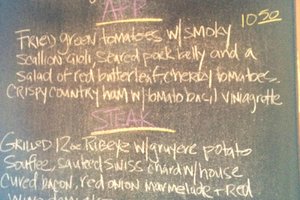 APP
10.50
FRIED green tomatoes w/ smoky
scallion aioli, seared pork belly and a
salad of red butterleaf + cherry tomatoes.
CRISPY COUNTRY ham w/ tomato basil vinaigrette
STEAK
GRILLED 12oz Ribeye w/ gruyere potato
Souflee, sauteed swiss chard w/ house
cured bacon, red onion marmelade + Red
wine